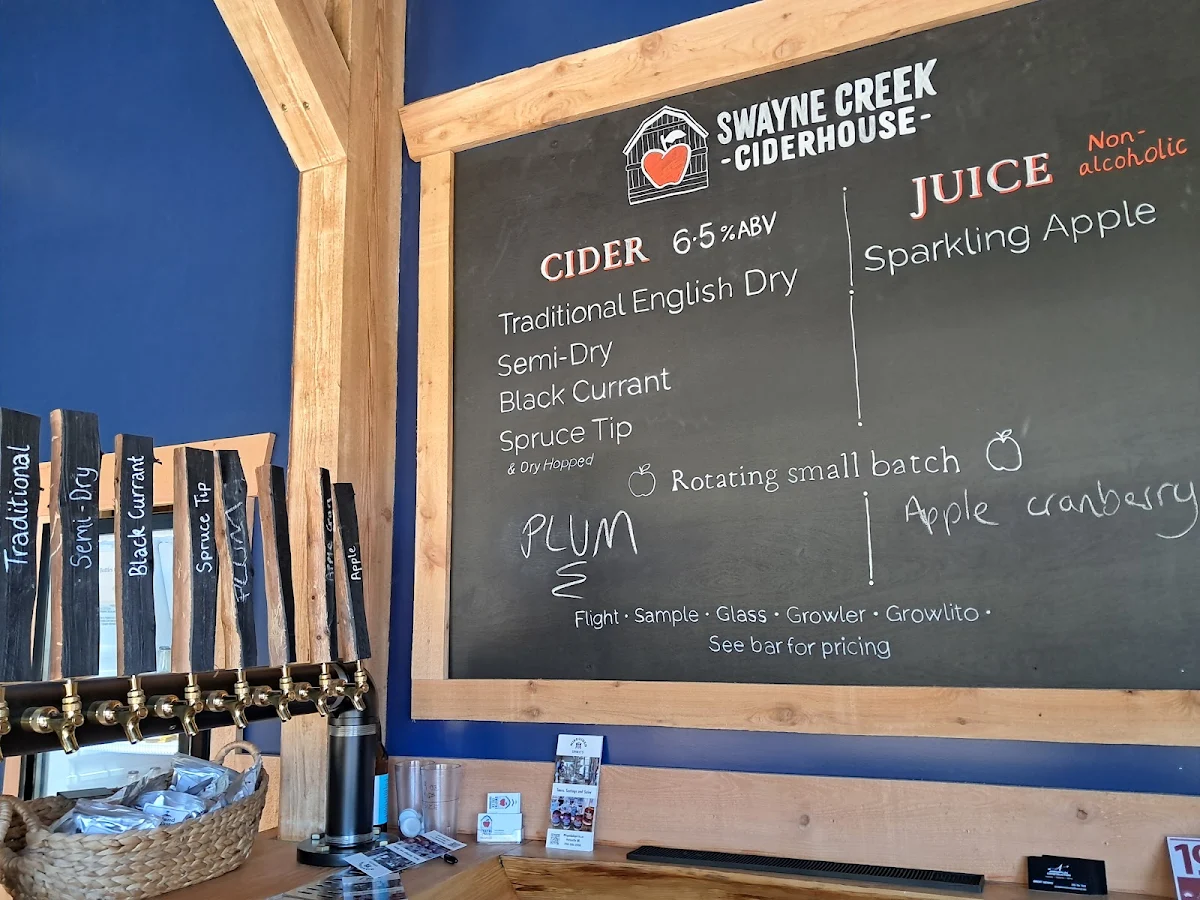 SWAYNE CREEK
-CIDERHOUSE-
CIDER 6.5%ABV
Traditional English Dry
Semi-Dry
Black Currant
Spruce Tip
& Dry Hopped
JUICE
Non-
alcoholic
Sparkling Apple
Rotating small batch
PLUM
Apple cranberry
Flight • Sample • Glass • Growler • Growlito •
See bar for pricing
Traditional
Semi-Dry
Black Currant
Spruce Tip
PLUM
Apple
Apple
19